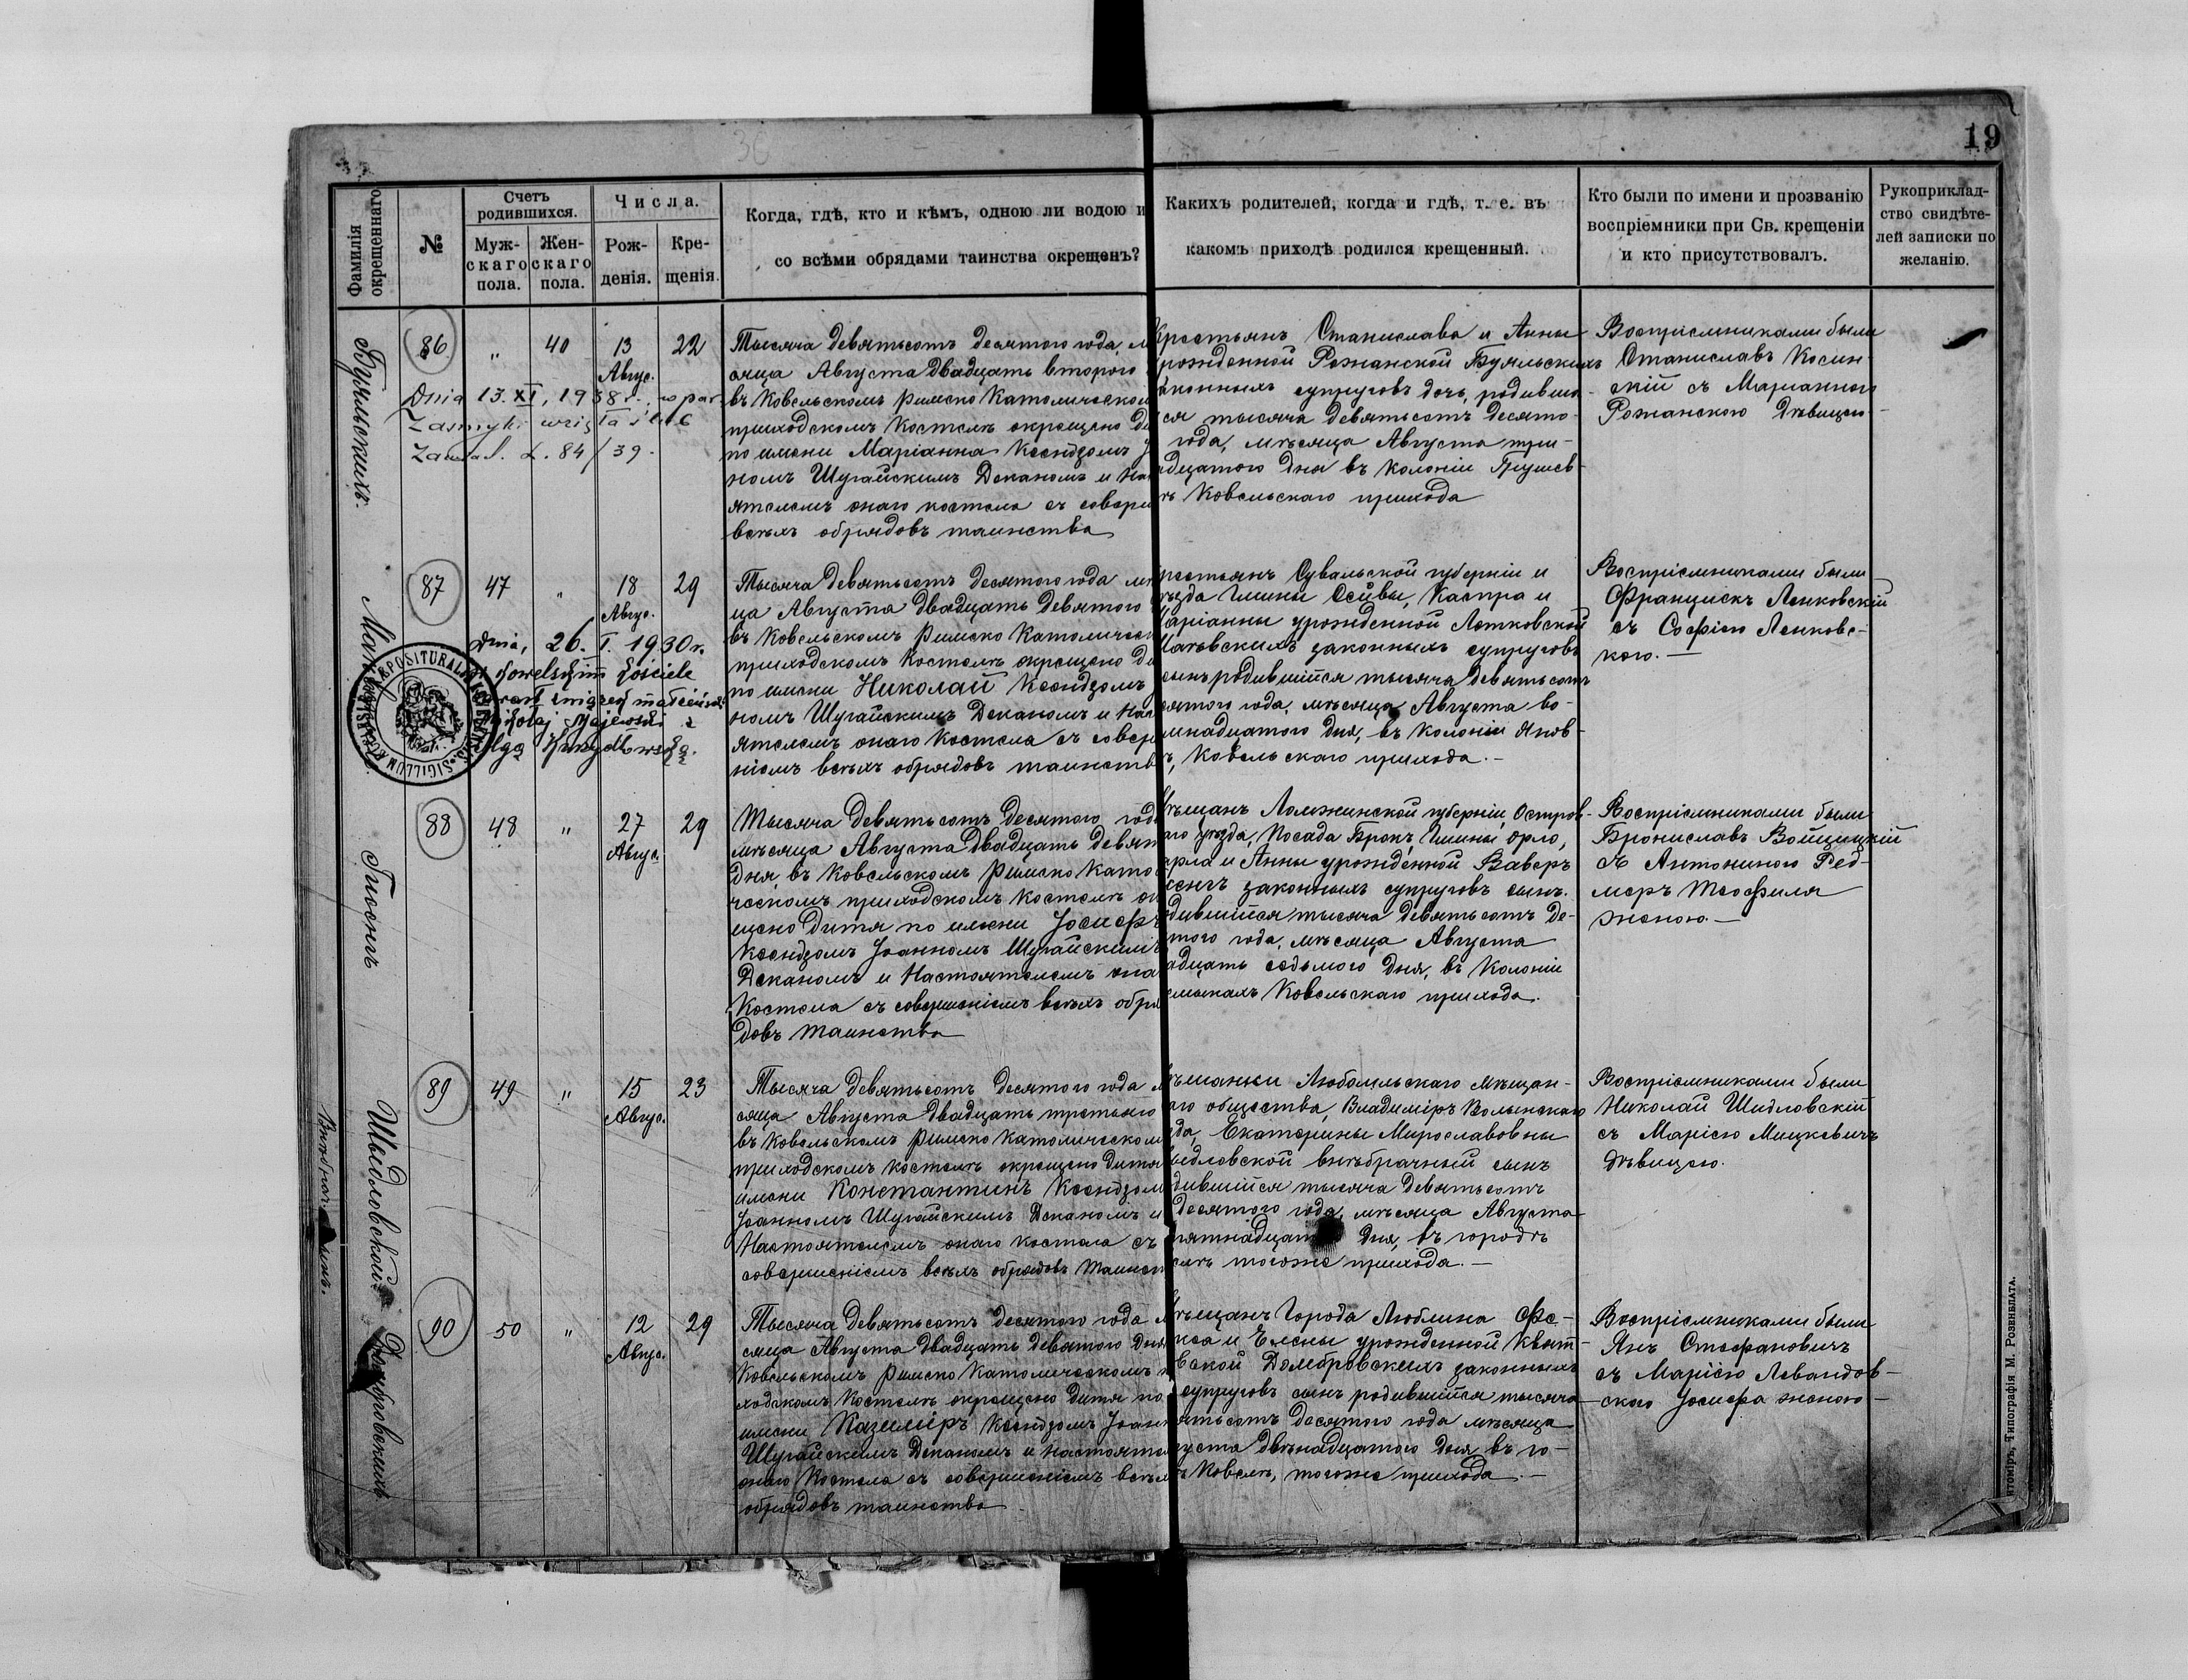 19
Фамилія окрещеннаго
№
Счетъ родившихся.
Мужскаго пола.
Женскаго пола.
Числа.
Рожденія.
Крещенія.
Когда, гдѣ, кто и кѣмъ, одною ли водою и
со всѣми обрядами таинства окрещенъ?
Какихъ родителей, когда и гдѣ, т. е. въ
какомъ приходѣ родился крещенный.
Кто были по имени и прозванію
воспріемники при Св. крещеніи
и кто присутствовалъ.
Рукоприклад-
ство свидѣте-
лей записки по
желанію.
86
"
40
13
Авгус.
22
Dnia 13. XI, 1938 r. w par.
L. 84/39.
Тысяча девятьсотъ десятого года, м
сяца Августа двадцать второго
въ Ковельскомъ Римско Католическом
приходскомъ Костелѣ окрещено Ди
по имени Маріанна Ксендзомъ
номъ Шугайскимъ Деканомъ и На
ятелемъ онаго костела съ совери
всѣхъ обрядовъ таинства
Крестьянъ Станислава и Анны
рожденной Рожанской Буяльскихъ
законныхъ супруговъ дочь, родивша-
ся тысяча девятьсотъ десято-
года, мѣсяца Августа три-
адцатого дня въ колоніи Грушев-
ѣ Ковельскаго прихода
Воспріемниками были
Станиславъ Косин-
скій съ Маріанною
Рожанскою дѣвицею
87
47
"
18
Авгус.
29
Dnia, 26. I. 1930 r.
Kowelskim kościele
Mikołaj Majewski z
Тысяча девятьсотъ десятого года мѣ
ца Августа двадцать девятого
въ Ковельскомъ Римско Католичес
приходскомъ Костелѣ окрещено ди
по имени Николай Ксендзомъ
номъ Шугайскимъ Деканомъ и Нас
ятелемъ онаго Костела съ совер
ніемъ всѣхъ обрядовъ таинств
рестьянъ Сувальской губерніи и
уѣзда Гмины Сейвы, Каспра и
Маріанны урожденной Лотковской
законныхъ супруговъ
сынъ родившійся тысяча девятьсотъ
сятого года, мѣсяца Августа во-
мнадцатого дня, въ колоніи Янов-
ѣ, Ковельскаго прихода.-
Воспріемниками были
Францискъ Ленковскій
съ Софіею Ленковс-
кою.-
88
48
"
27
Авгус.
29
Гюснгъ
Тысяча девятьсотъ десятого года
мѣсяца Августа двадцать девят
дня, въ Ковельскомъ Римско Като
ческомъ приходскомъ Костелѣ ок
щено дитя по имени Іосифъ
Ксендзомъ Іоанномъ Шугайскимъ
Деканомъ и Настоятелемъ она
Костела съ совершеніемъ всѣхъ обря
довъ таинства
ѣщанъ Ломжинской губерніи, Остров-
аго уѣзда, Посада Брокъ, Гмины Орло,
арла и Анны урожденнойВаверъ
законныхъ супруговъ сынъ.
одившійся тысяча девятьсотъ де-
ятого года, мѣсяца Августа
адцать седьмого дня, въ колоніи
Ковельскаго прихода.
Воспріемниками были
Брониславъ Войцицкій
съ Антониною Ред-
меръ Теофиля
женою.-
89
49
"
15
Авгус.
23
Шыдловской
Тысяча девятьсотъ десятого года м
сяца Августа двадцать третьяго
въ Ковельскомъ Римско Католическом
приходскомъ костелѣ окрещено дитя
имени Константинъ Ксендзом
Іоанномъ Шугайскимъ Деканомъ и
Настоятелемъ онаго костела съ
совершеніемъ всѣхъ обрядовъ таинст
ѣщанки Любомльскаго мѣщан-
аго общества, Владиміръ Волынскаго
да, Екатерины Мирославовны
ыдловской внѣбрачный сынъ
дившійся тысяча девятьсотъ
десятого года, мѣсяца Августа
пятнадцат дня, въ городѣ
елѣ тогоже прихода.-
Воспріемниками были
Николай Шидловскій
съ Маріею Мицкевичъ
дѣвицею.
90
50
"
12
Авгус.
29
Домбровскихъ
Тысяча девятьсотъ десятого года м
сяца Августа двадцать девятого дня
Ковельскомъ Римско Католическомъ п
ходскомъ Костелѣ окрещено дитя по
имени Казиміръ Ксендзомъ Іоанн
Шугайскимъ Деканомъ и Настояте
онаго Костела съ совершеніемъ всѣх
обрядовъ таинства
ѣщанъ Города Люблина Фе-
кса и Елены урожденной Квят-
вской Домбровскихъ законныхъ
супруговъ сынъ родившійся тысяча
вятьсотъ десятого года мѣсяца
густа двѣнадцатого дня въ го-
ѣ Ковелѣ, тогоже прихода.-
Воспріемниками были
Янъ Стефановичъ
съ Маріею Левандов-
скою Іосифа женою-
итоміръ, Типографія М. Розенблата.